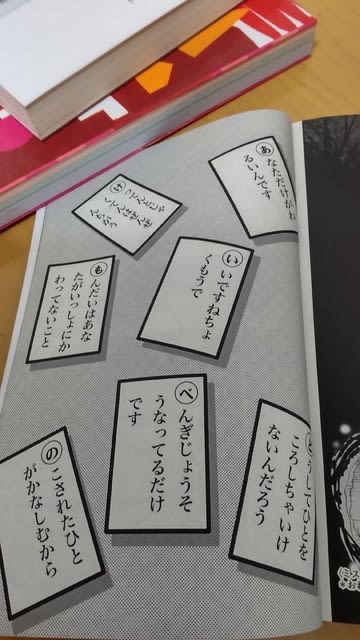 あなただけがわ
るいんです
けってんとじゃ
くてんはぜんぜ
んちがう
いいですねちょ
くもうで
もんだいはあな
たがいっしょにか
わってないこと
べんぎじょうそ
うなってるだけ
です
どうしてひとを
ころしちゃいけ
ないんだろう
のこされたひと
がかなしむから